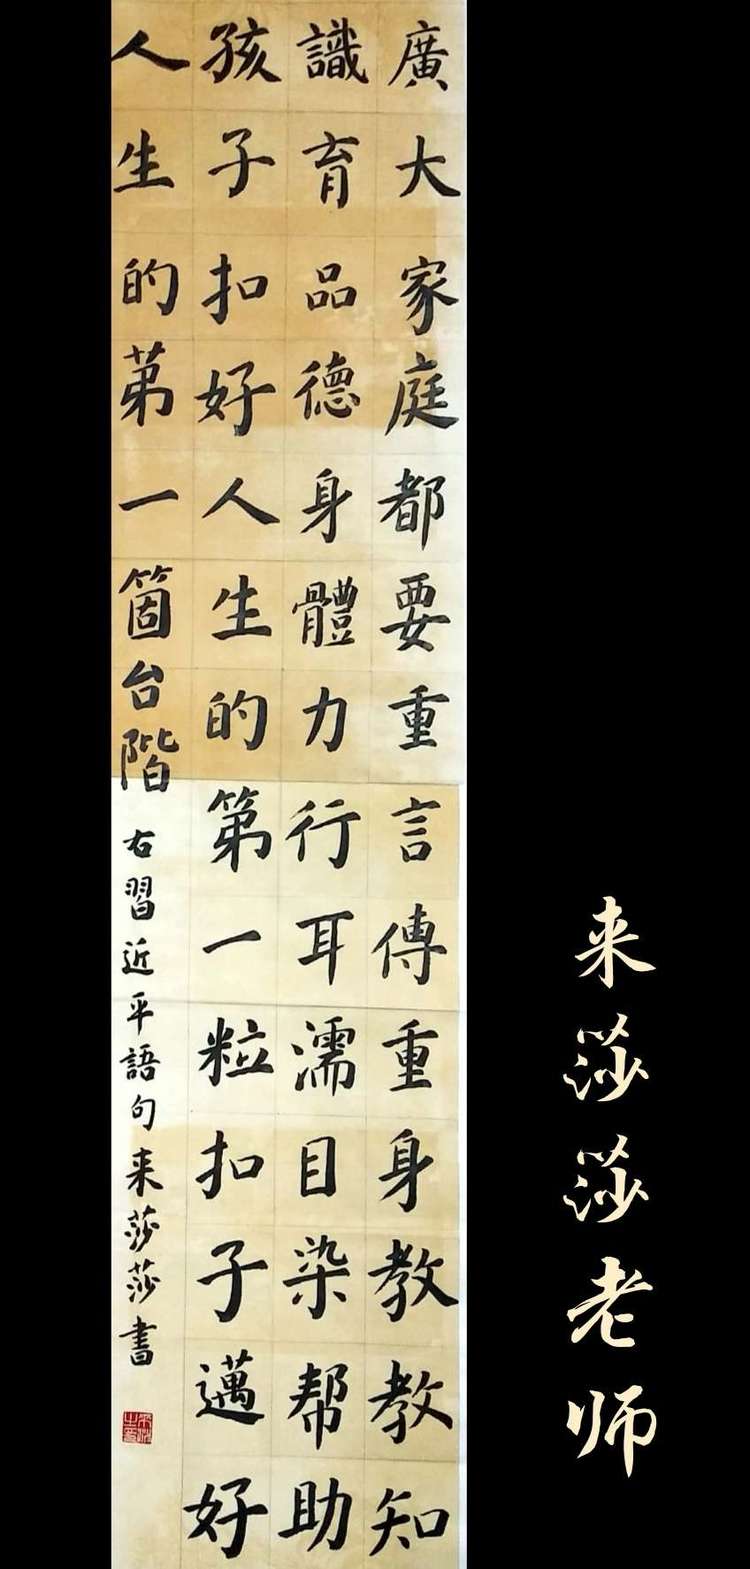 廣大家庭都要重言傳重身教教知
識育品德身體力行耳濡目染帮助
孩子扣好人生的第一粒扣子邁好
人生的苐一箇台階
右習近平語句来莎莎書
来莎莎老师